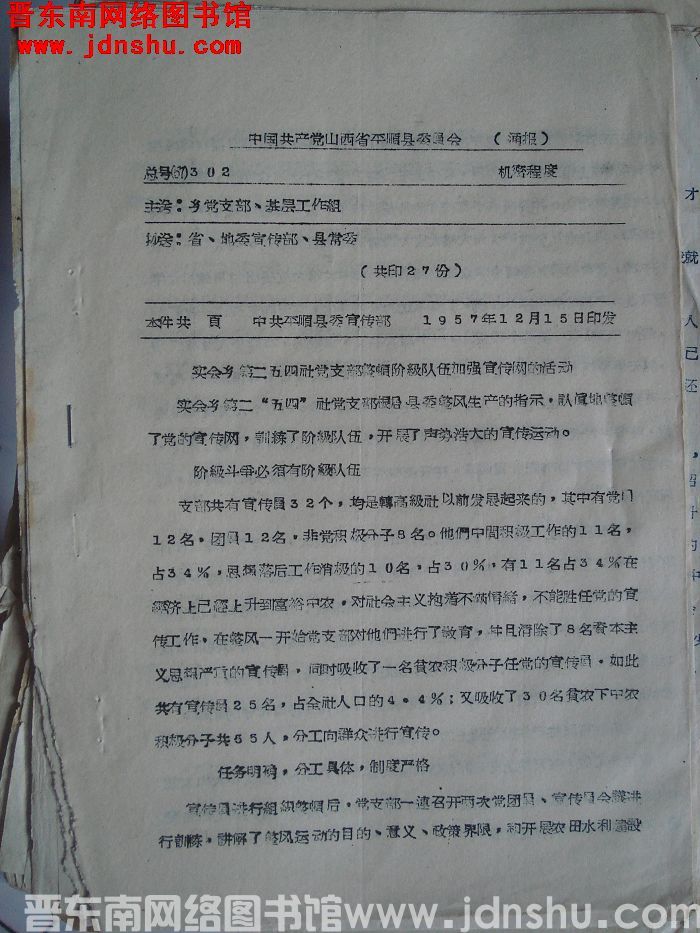 晋东南网络图书馆
www.jdnshu.com
中国共产党山西省平顺县委员会 (通报)
总号(57)302 机密程度
主送：各党支部、基层工作組
抄送：省、地委宣传部、县常委
(共印27份)
本件共 頁 中共平顺县委宣传部 1957年12月15日印发
实会乡第二五四社党支部整頓阶級队伍加强宣传网的活动
实会乡第二“五四”社党支部根据县委整风生产的指示，認眞地整頓
了党的宣传网，訓练了阶級队伍，开展了声势浩大的宣传运动。
阶級斗爭必須有阶級队伍
支部共有宣传員32个，均是轉高級社以前发展起来的，其中有党員
12名，团員12名，非党积极分子8名。他們中間积极工作的11名，
占34%，思想落后工作消极的10名，占30%，有11名占34%在
經济上已經上升到富裕中农，对社会主义抱着不满情緒，不能胜任党的宣
传工作，在整风一开始党支部对他們进行了教育，幷且清除了8名資本主
义思想严重的宣传員，同时吸收了一名贫农积极分子任党的宣传員，如此
共有宣传員25名，占全社人口的4.4%；又吸收了30名贫农下中农
积极分子共55人，分工向群众进行宣传。
任务明确，分工具体，制度严格
宣传員进行組織整頓后，党支部一連召开两次党团員、宣传員会議进
行訓练，讲解了整风运动的目的、意义、政策界限，和开展农田水利建設
才
就
人
已
还
晋东南网络图书馆 www.jdnshu.com